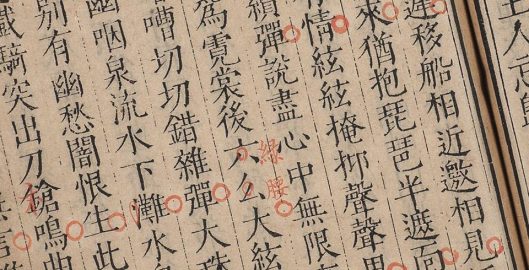 主人忘
遲移船相近邀相見
來猶抱琵琶半遮面
情絃絃掩抑聲聲思
續彈說盡心中無限
為霓裳後六么大絃
綠腰
嘈切切錯雜彈大珠
幽咽泉流水下灘水
別有幽愁闇恨生此
騎突出刀鎗鳴曲
無言